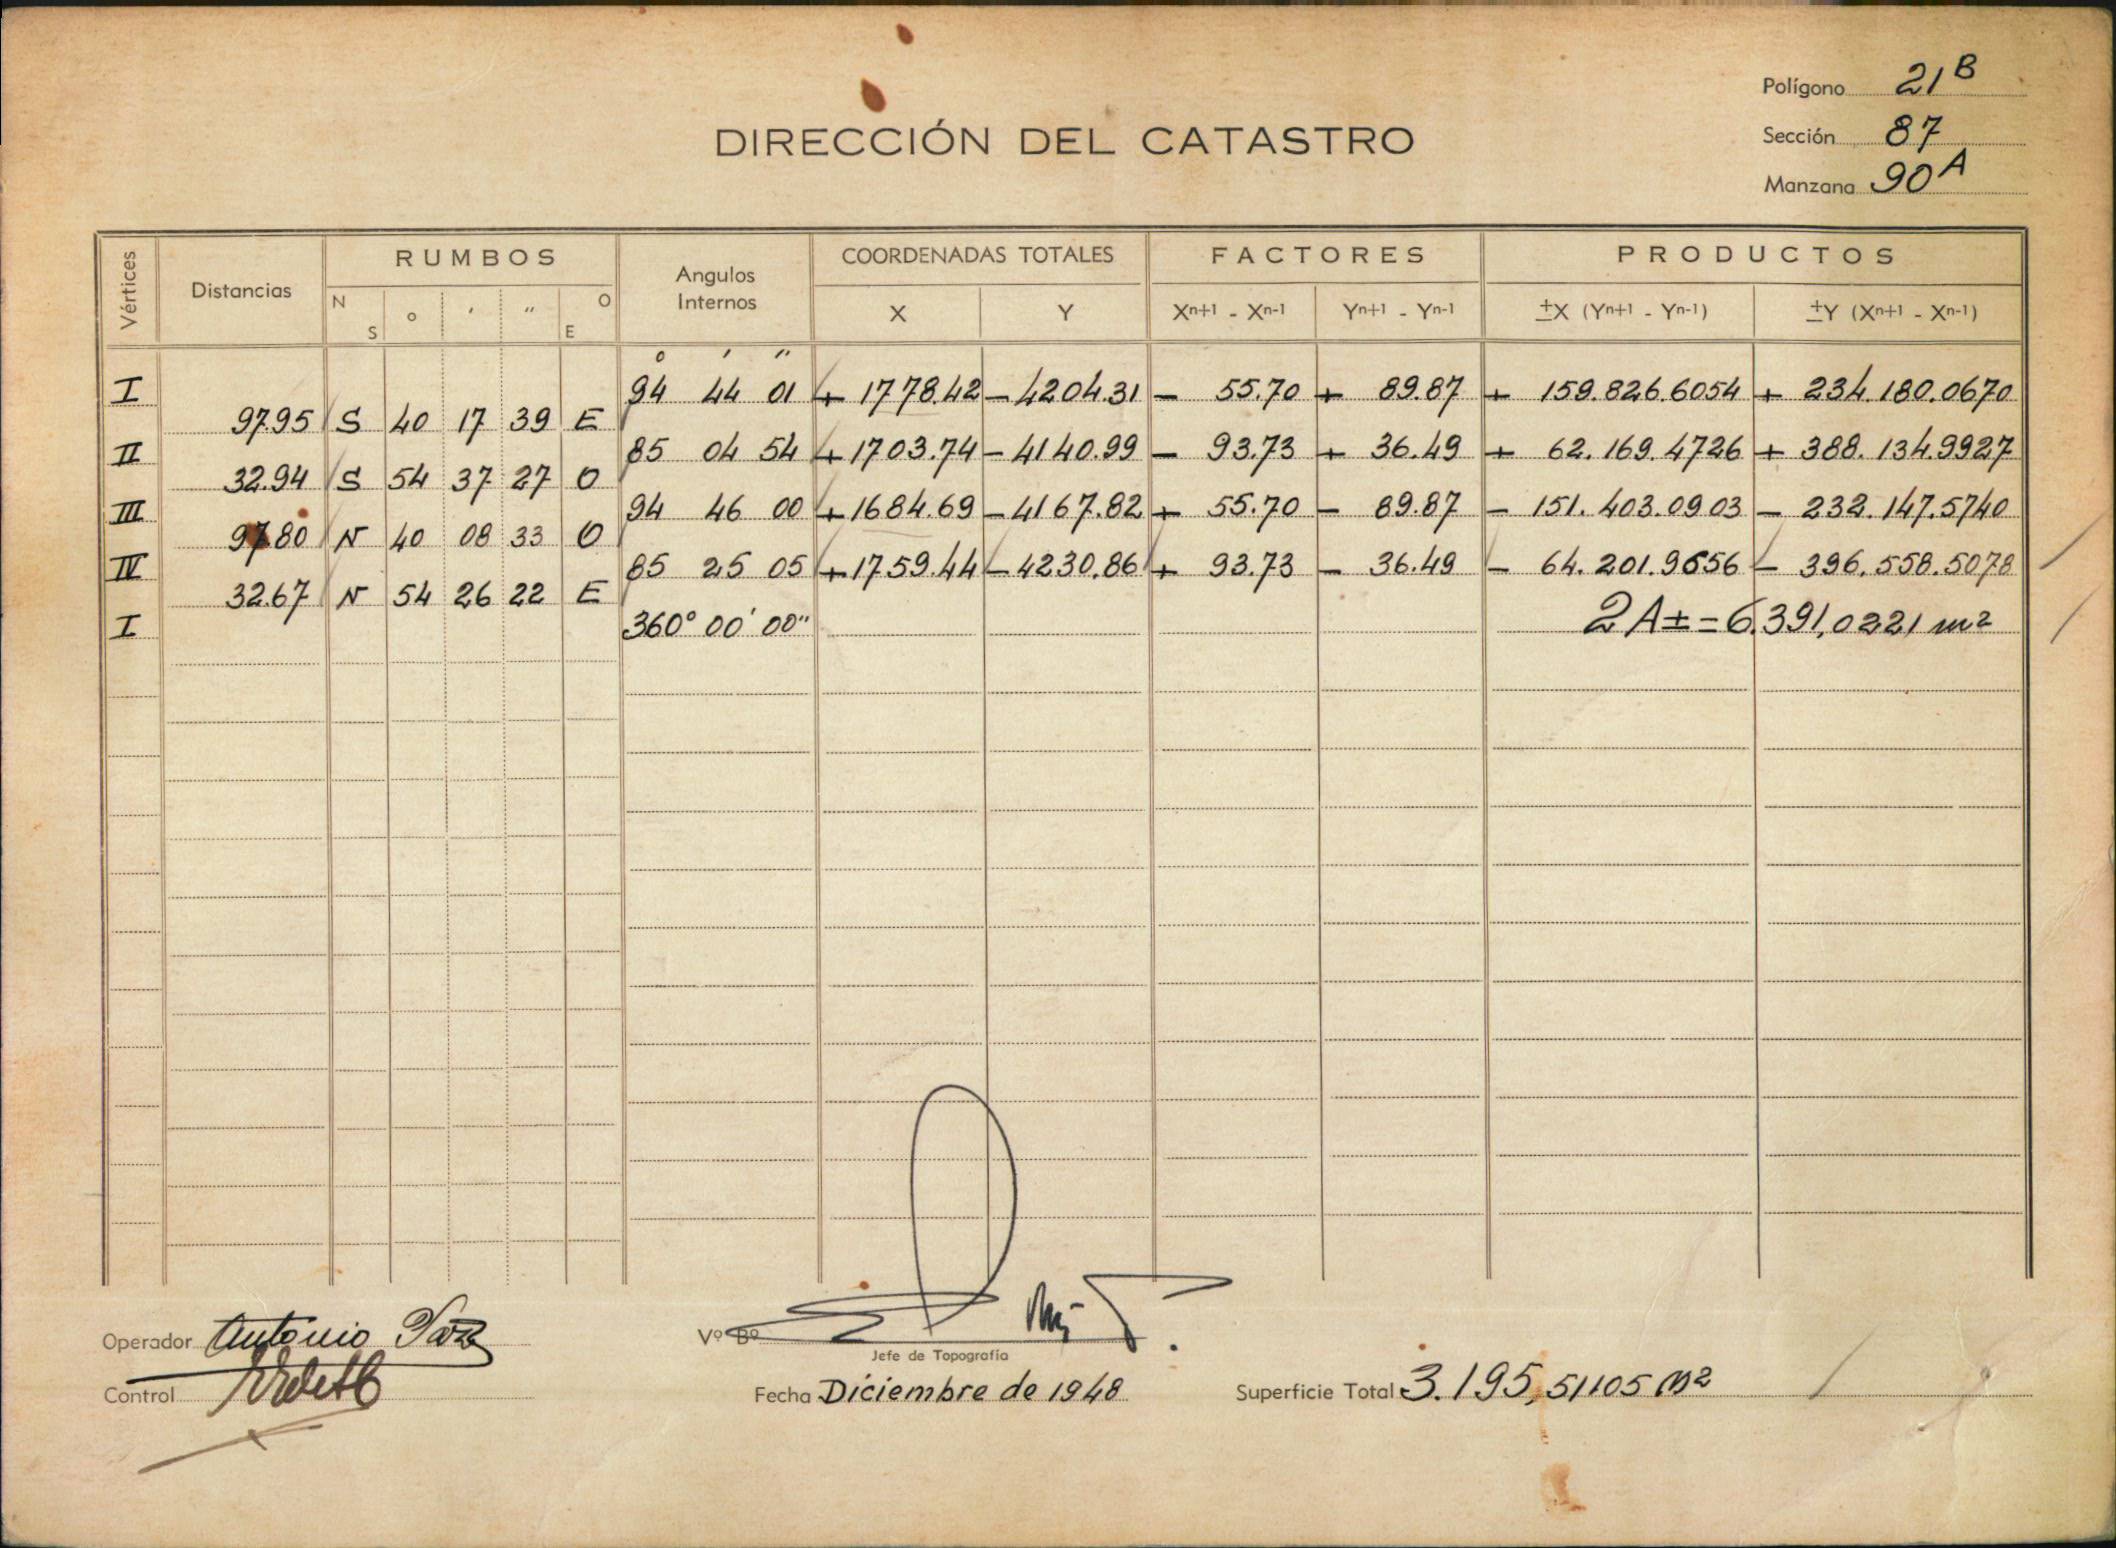 Polígono 21 B
DIRECCIÓN DEL CATASTRO
Sección 87
Manzana 90 A
Vértices Distancias RUMBOS Angulos Internos COORDENADAS TOTALES FACTORES PRODUCTOS
N S ° ' " O E X Y Xn+1 - Xn-1 Yn+1 - Yn-1 ±X (Yn+1 - Yn-1) ±Y (Xn+1 - Xn-1)
° ' "
I 94 44 01 + 1778.42 - 4204.31 - 55.70 + 89.87 + 159.826.6054 + 234.180.0670
97.95 S 40 17 39 E
II 85 04 54 + 1703.74 - 4140.99 - 93.73 + 36.49 + 62.169.4726 + 388.134.9927
32.94 S 54 37 27 O
III 94 46 00 + 1684.69 - 4167.82 + 55.70 - 89.87 - 151.403.0903 - 232.147.5740
97.80 N 40 08 33 O
IV 85 25 05 + 1759.44 - 4230.86 + 93.73 - 36.49 - 64.201.9656 - 396.558.5078
32.67 N 54 26 22 E
I 360° 00' 00" 2A± = 6.391,0221 m²
Operador Antonio
Vº Bº
Jefe de Topografía
Control
Fecha Diciembre de 1948
Superficie Total 3.195,51105 m²